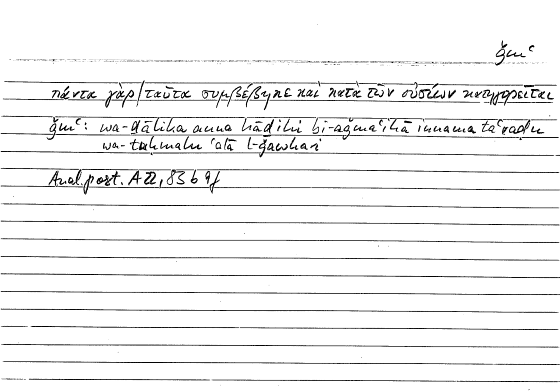 ǧmʿ
πάντα γὰρ/ταῦτα συμβέβηκε καὶ κατὰ τῶν οὐσιῶν κατηγορεῖται
ǧmʿ: wa-ḏālika anna hāḏihi bi-aǧmaʿihā innama taʿraḍu
wa-tuḥmalu ʿalā l-ǧawhari
Anal. post. A 22, 83 b 9f